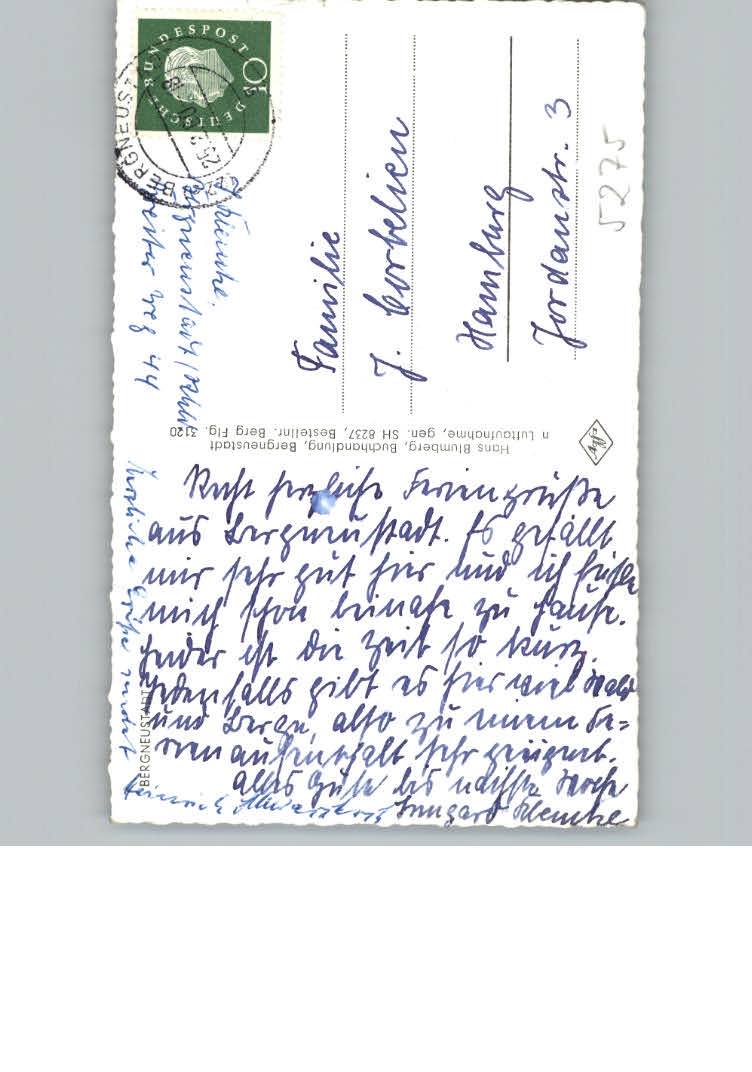 Recht herzliche Feriengrüße
aus Bergneustadt. Es gefällt
mir sehr gut hier und ich fühle
mich schon beinahe zu Hause.
Leider ist die Zeit so kurz.
Jedenfalls gibt es hier viel Wald
und Berge, also zu einem Fe=
rienaufenthalt sehr geeignet.
Alles Gute bis nächste Woche
Irmgard Klemke
Herzliche Grüße sendet
Heinrich
BERGNEUSTADT
Hans Blumberg, Buchhandlung, Bergneustadt
n Luftaufnahme, gen. SH 8237, Bestellnr. Berg Flg. 3120
Klemke
Bergneustadt
Breiter Weg 44
Familie
J. Corbelien
Hamburg
Jordanstr. 3
5275
DEUTSCHE BUNDESPOST
BERGNEUSTADT